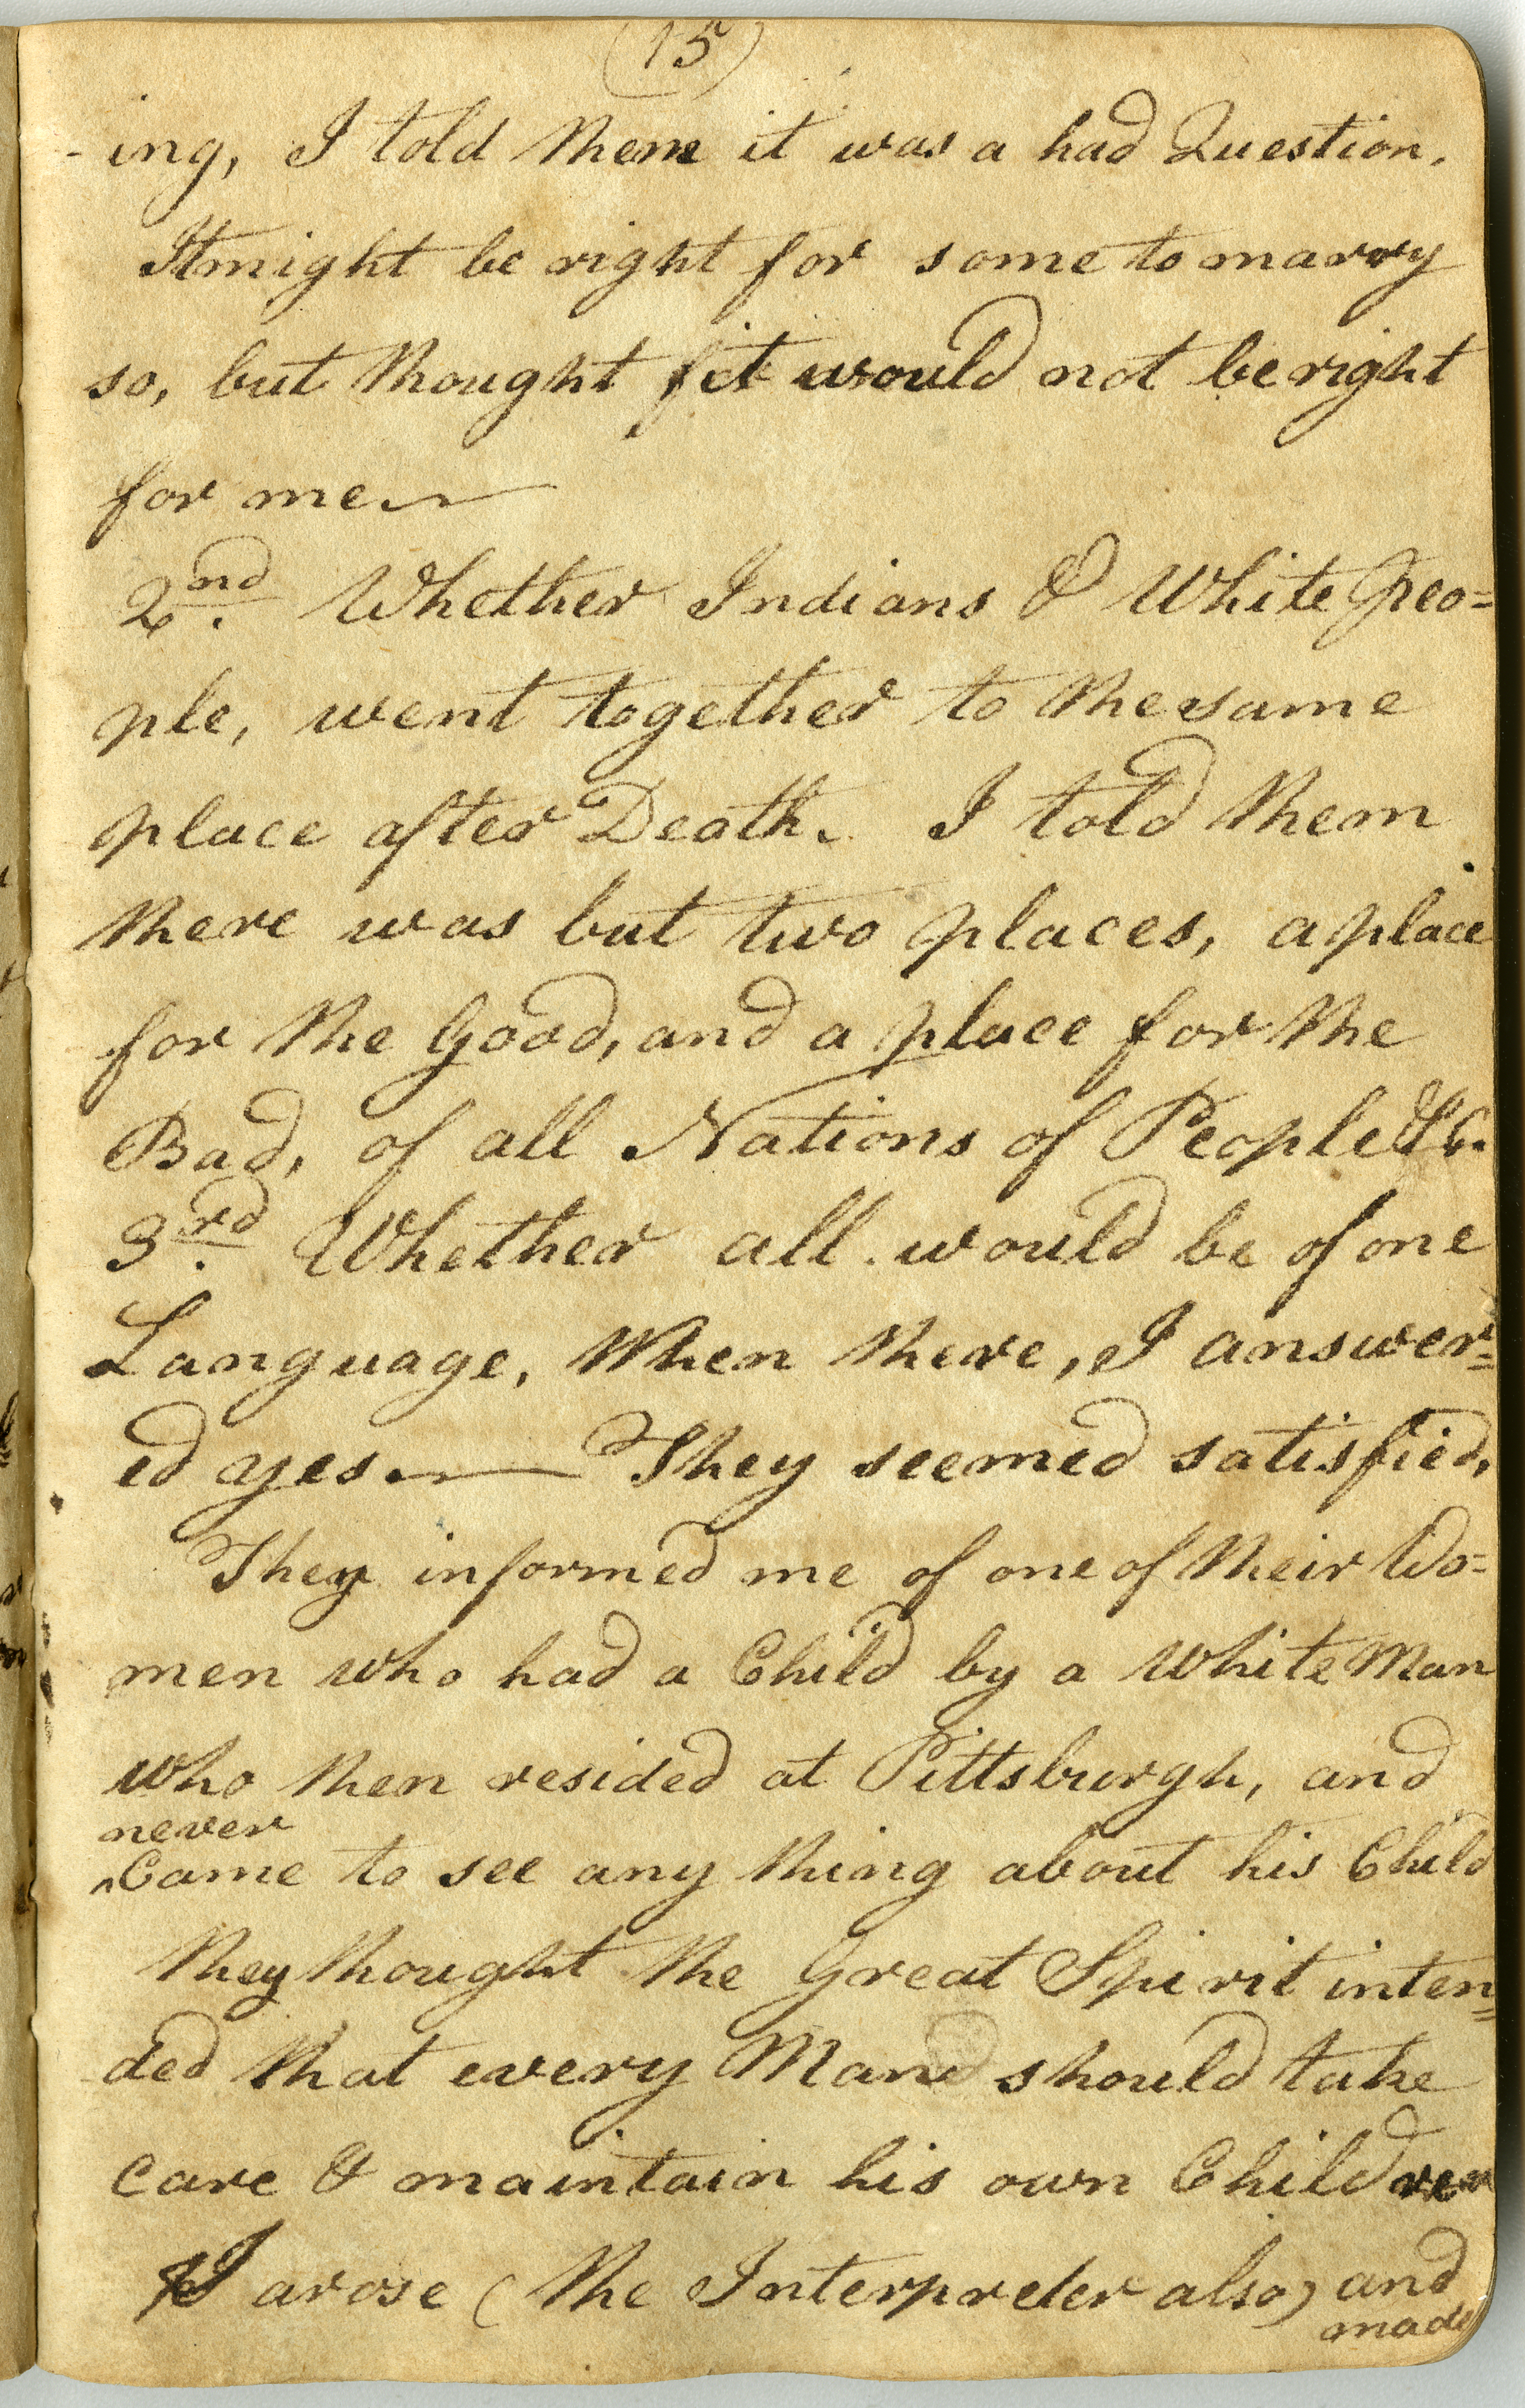 (15)
-ing, I told them it was a had Question.
It might be right for some to marry
so, but thought it would not be right
for me
2nd. Whether Indians & White Peo=
ple, went together to the same
place after Death. I told them
there was but two places, a place
for the Good, and a place for the
Bad, of all Nations of People &c.
3rd. Whether all would be of one
Language, When there, I answer=
ed yes. — They seemed satisfied,
They informed me of one of their Wo=
men who had a Child by a White Man
who then resided at Pittsburgh, and
never
^Came to see any thing about his Child
they thought the Great Spirit inten=
ded that every Man should take
care & maintain his own Children
I arose (the Interpreter also) and
made